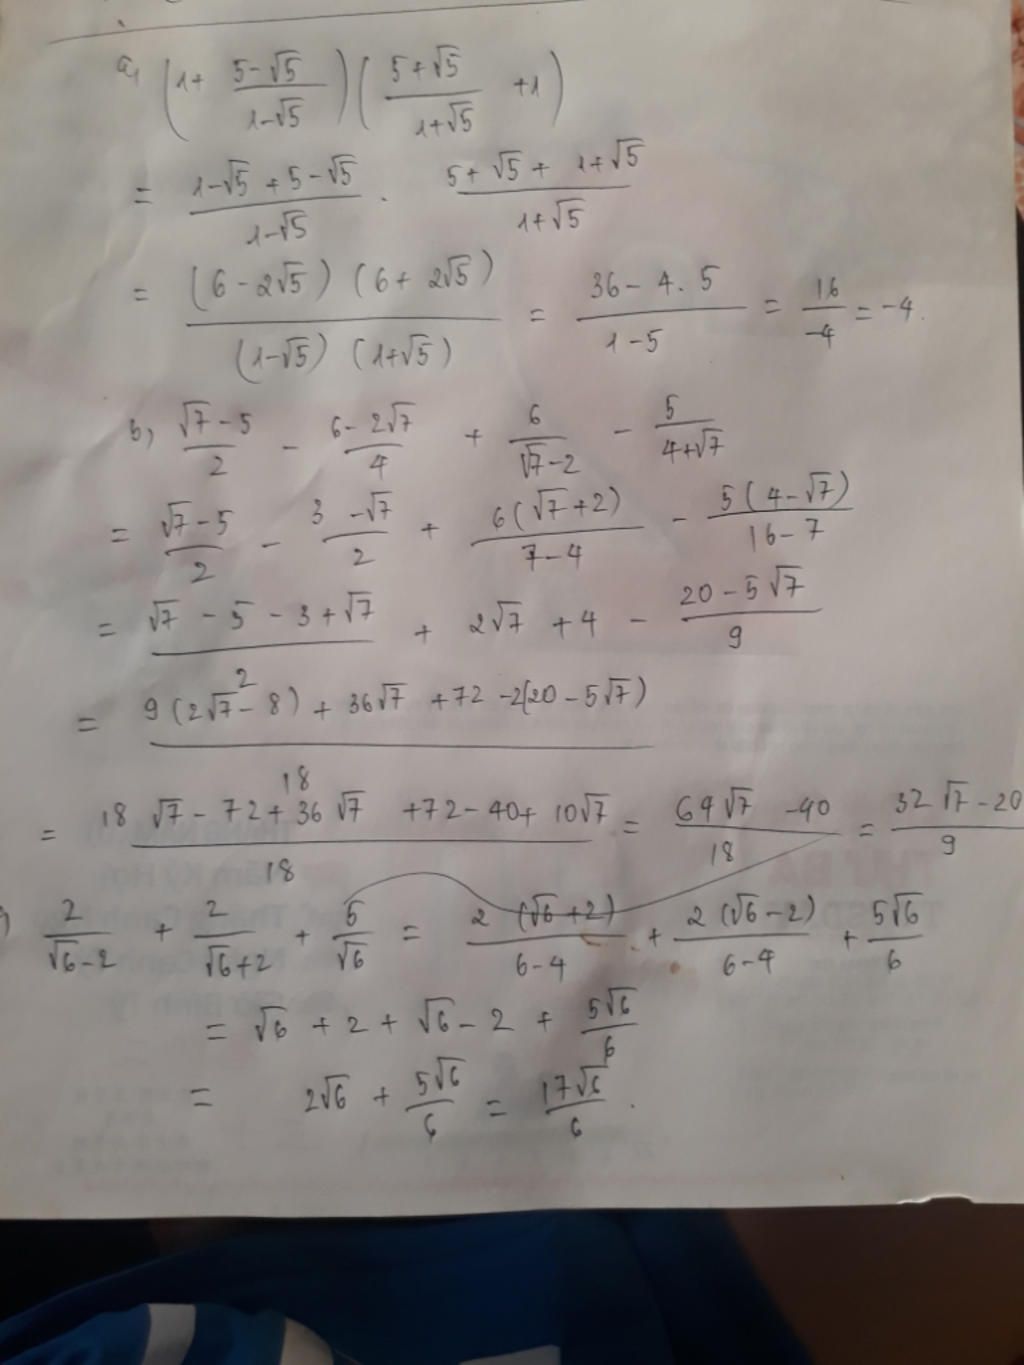 a, (1 + (5-√5)/(1-√5)) ((5+√5)/(1+√5) + 1)
= (1-√5 + 5-√5)/(1-√5) . (5+√5 + 1+√5)/(1+√5)
= ((6-2√5) (6+2√5))/((1-√5) (1+√5)) = (36 - 4.5)/(1-5) = 16/-4 = -4.
b, (√7-5)/2 - (6-2√7)/4 + 6/(√7-2) - 5/(4+√7)
= (√7-5)/2 - (3-√7)/2 + (6(√7+2))/(7-4) - (5(4-√7))/(16-7)
= (√7-5-3+√7)/2 + 2√7 + 4 - (20-5√7)/9
= (9(2√7-8) + 36√7 + 72 - 2(20-5√7))/18
= (18√7 - 72 + 36√7 + 72 - 40 + 10√7)/18 = (64√7 - 40)/18 = (32√7 - 20)/9
) 2/(√6-2) + 2/(√6+2) + 5/√6 = (2(√6+2))/(6-4) + (2(√6-2))/(6-4) + 5√6/6
= √6 + 2 + √6 - 2 + 5√6/6
= 2√6 + 5√6/6 = 17√6/6.